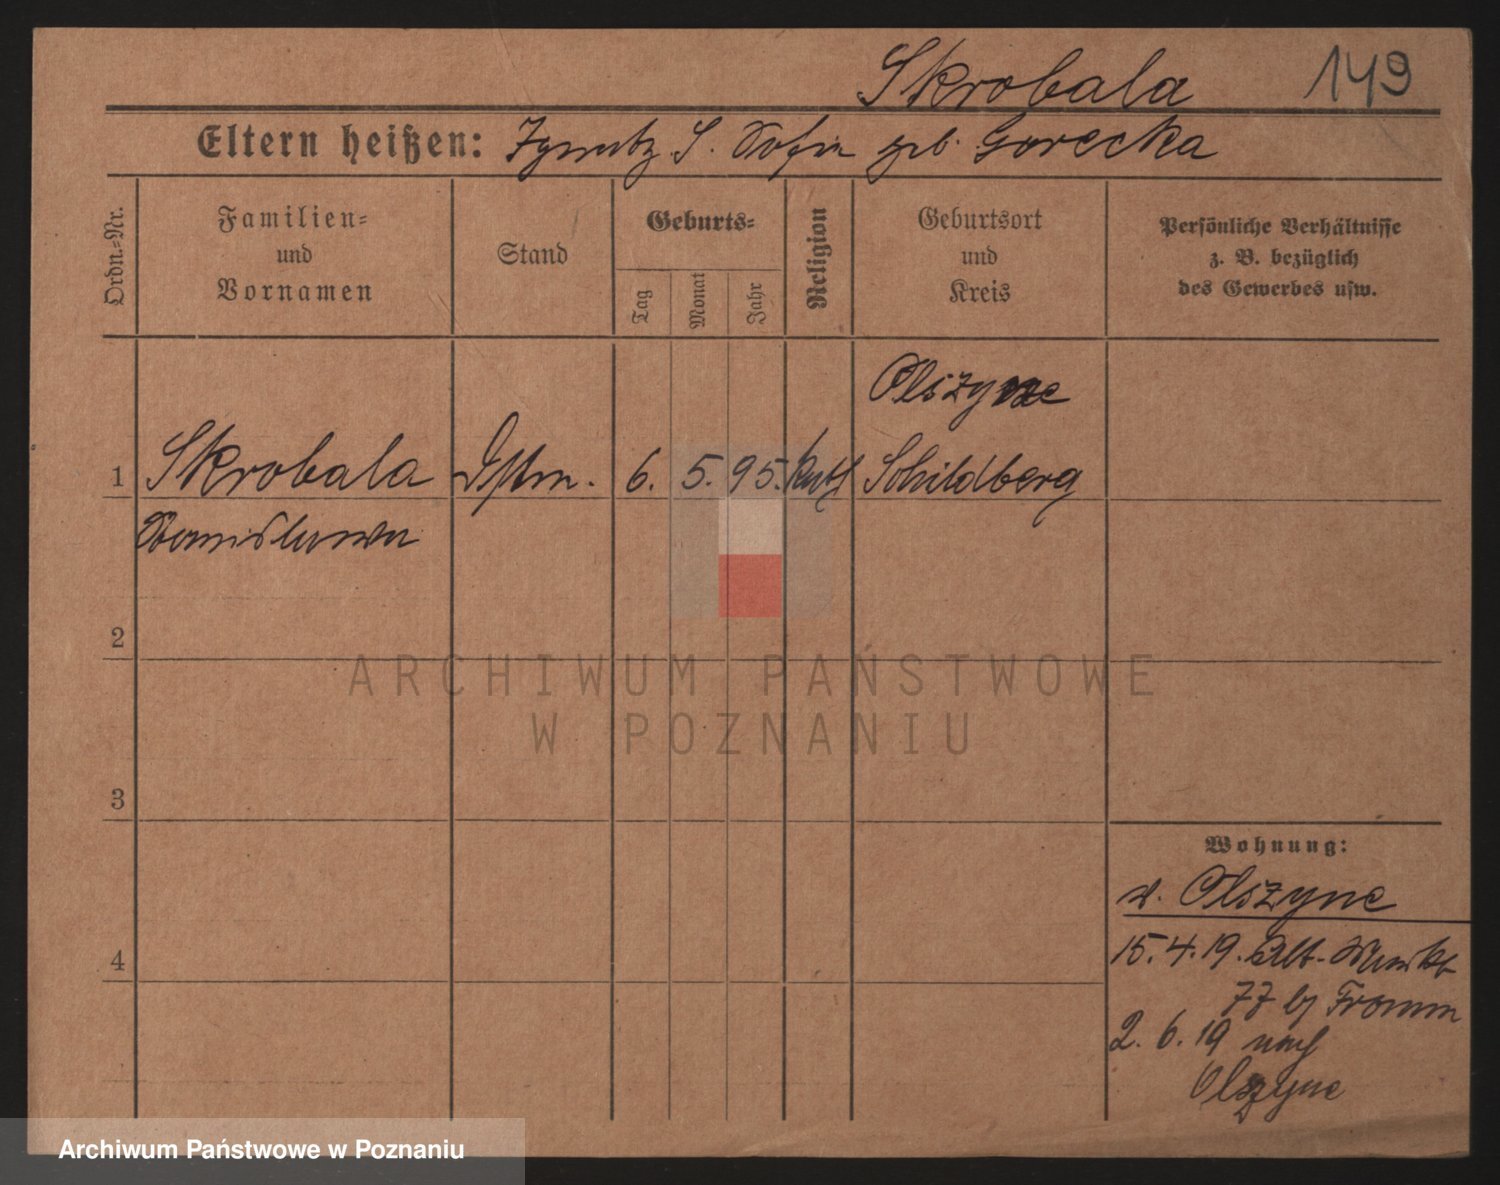 Skrobala 149
Eltern heißen: Ignatz S. Sofia geb. Gorecka
Ordn.=Nr.
Familien=
und
Vornamen
Stand
Geburts=
Tag
Monat
Jahr
Religion
Geburtsort
und
Kreis
Persönliche Verhältnisse
z. B. bezüglich
des Gewerbes usw.
Olszyne
1 Skrobala 6. 5. 95. kath Schildberg
Stanislawa
2
ARCHIWUM PAŃSTWOWE
W POZNANIU
3
Wohnung:
v. Olszyne
4
15.4.19. Alt. Markt
77 bj Fromm
2. 6. 19 nach
Olszyne
Archiwum Państwowe w Poznaniu